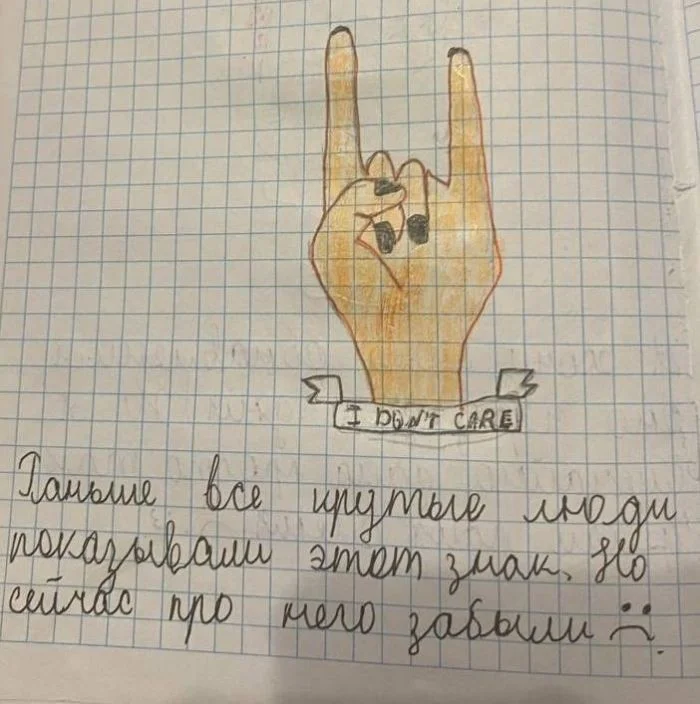 I DON'T CARE
Раньше все крутые люди
показывали этот знак. Но
сейчас про него забыли :(